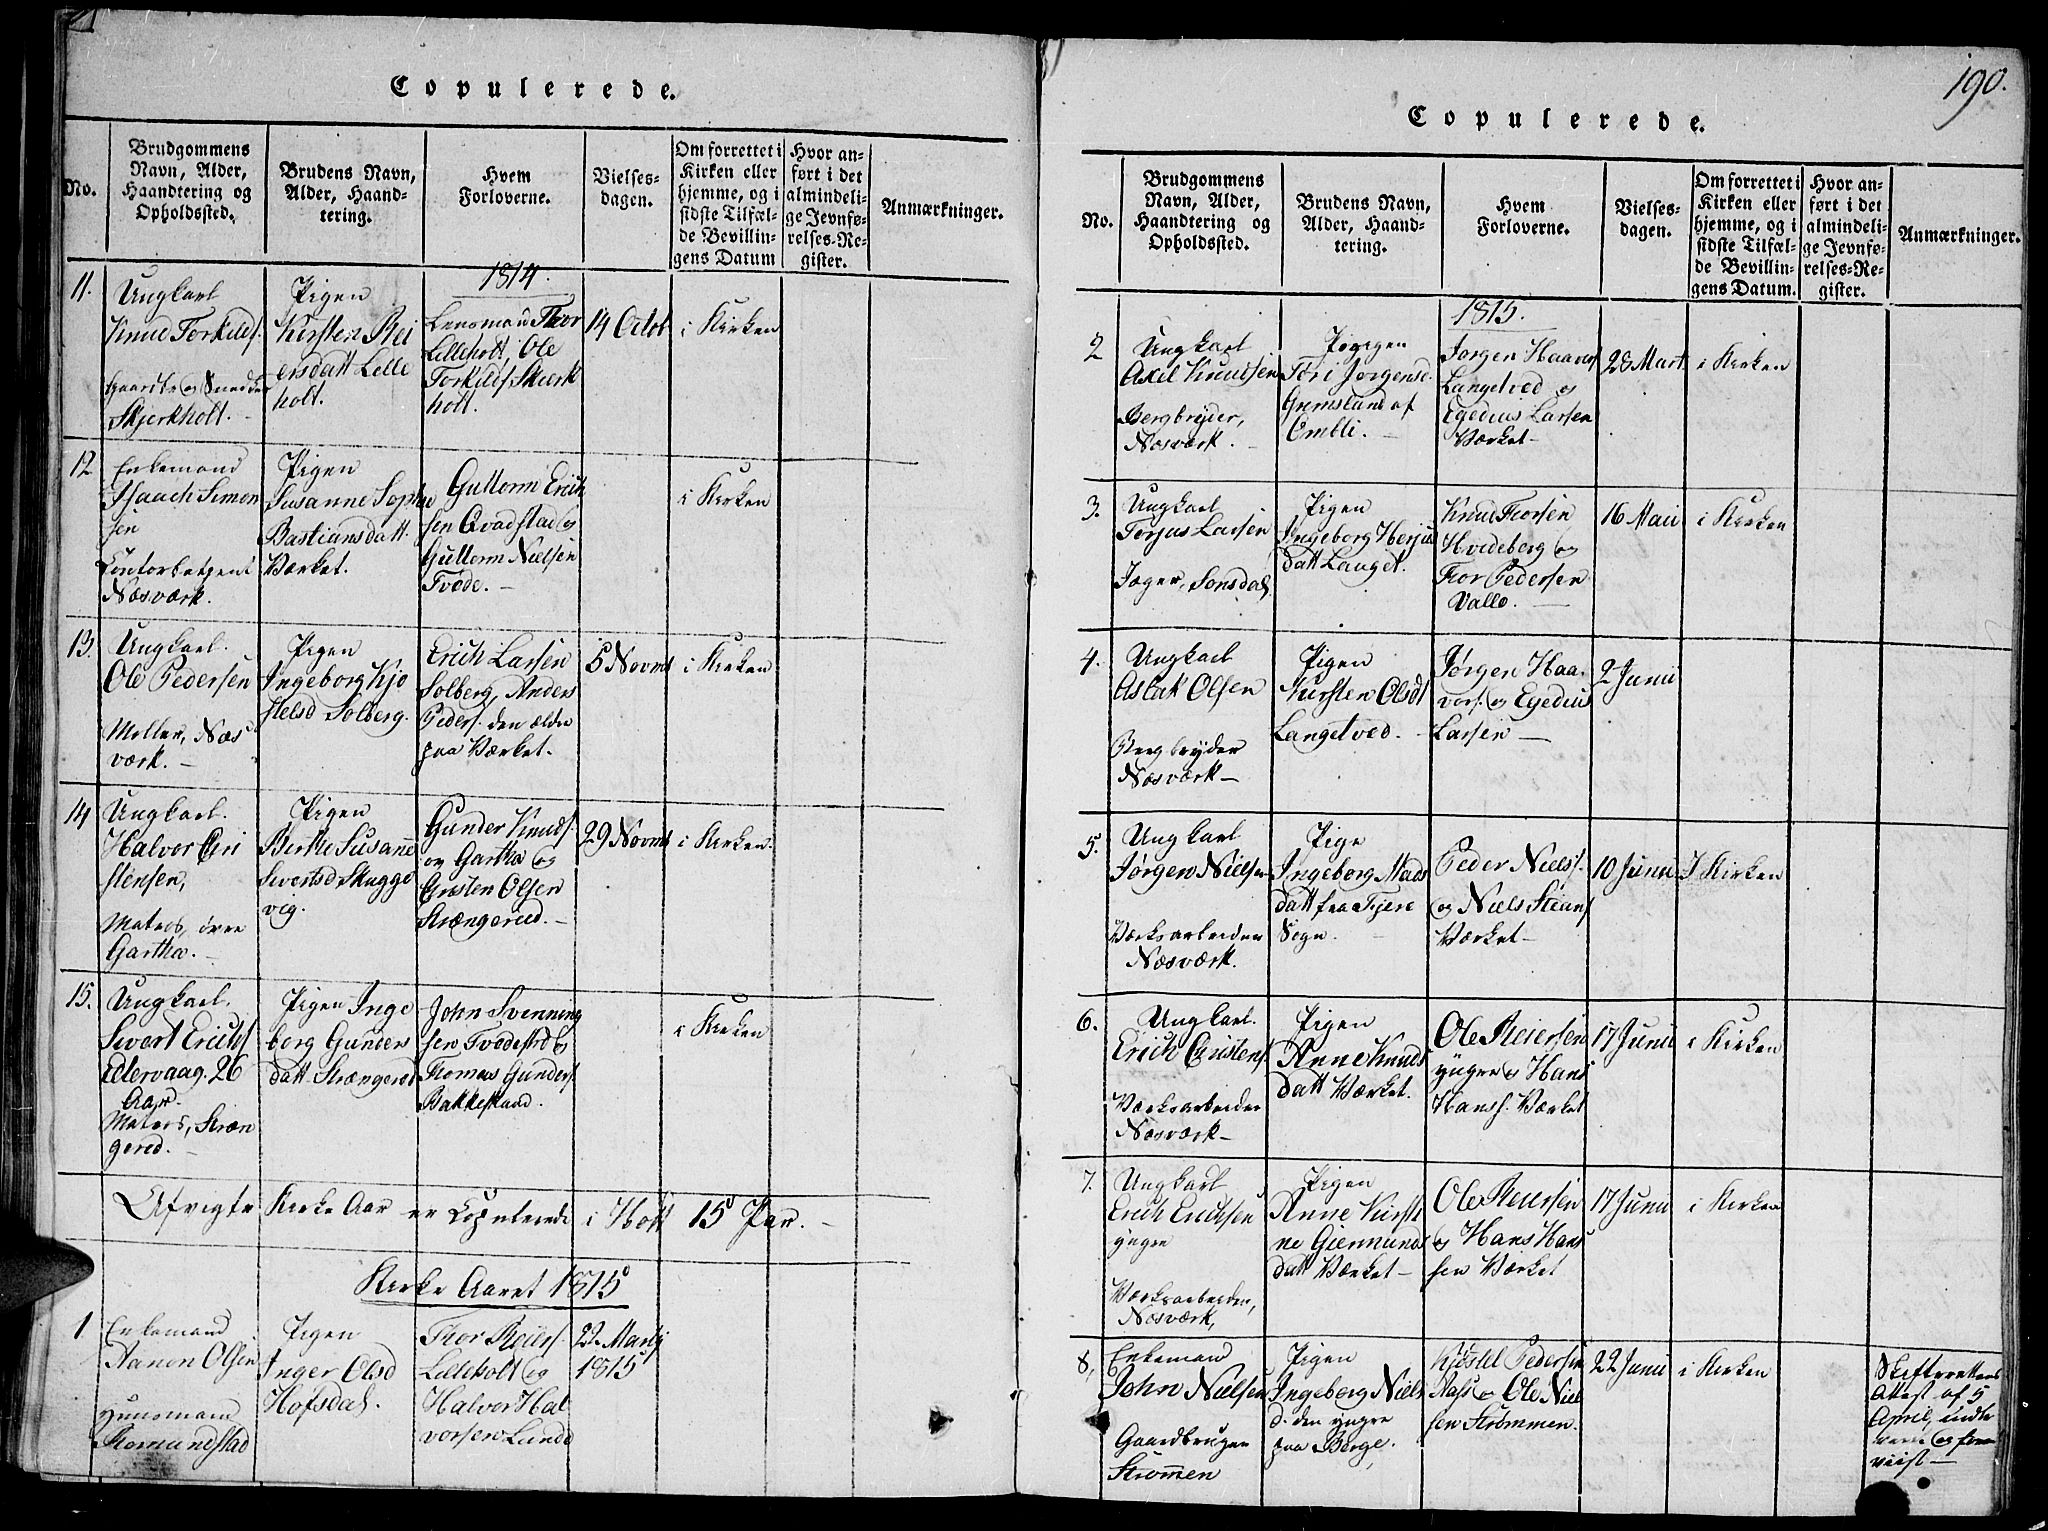 Copulerede.
No.
Brudgommens
Navn, Alder,
Haandtering og
Opholdssted.
Brudens Navn,
Alder, Haand-
tering.
Hvem
Forloverne.
Vielses-
dagen.
Om forrettet i
Kirken eller
hjemme, og i
sidste Tilfæl-
de Bevillin-
gens Datum
Hvor an-
ført i det
almindeli-
ge Jevnfø-
relses-Re-
gister.
Anmærkninger.
1814.
11.
Ungkarl
Knud Torkilds.
Skjerkholt.
Pigen
Kirsten Rei
ersdatt Lille
holt.
Lensmand Thor
Lilleholt, Ole
Torkilds Skierk
holt.
14 Octob
i Kirken
12
Enkemand
Isaach Simon
sen
Contorbetjent
Næsværk.
Pigen
Susanne Sophie
Bastiansdatt.
Værket.
Guttorm Erich
sen Qvadstad og
Guttorm Nielsen
Tvede. —
i Kirken
13.
Ungkarl.
Ole Pedersen
Møller, Næs
værk. —
Pigen
Ingeborg Kjø
stelsd Solberg.
Erich Larsen
Solberg, Anders
Peders. den ældre
paa Værket.
5 Novmb
i Kirken
14
Ungkarl.
Halvor Cri
stensen,
Matros, øvre
Gartha. —
Pigen
Berthe Susanne
Sivertsd Skugge
vig.
Gunder Knuds.
ov Gartha og
Cristen Olsen
Strængereid. —
29 Novmb
i Kirken.
15.
Ungkarl.
Sivert Erichs
Edlervaag. 26
Aar.
Matros, Stræn
gereid. —
Pigen Inge
borg Gunders
datt Strængereid
John Svenning
sen Tvedestrd og
Thomas Gunders.
Bakkeskaad.
i Kirken
Afvigte Kirke Aar er Copulerede i Holt 15 Par. —
Kirke Aaret 1815
1
Enkemand
Aanon Olsen
Huusmand
Romundstad
Pigen
Inger Olsd
Hofsdal.
Thor Reiers.
Lilleholt og
Halvor Hal
vorsen Lunde
22 Martj
1815
190.
Copulerede.
No.
Brudgommens
Navn, Alder,
Haandtering og
Opholdssted.
Brudens Navn,
Alder, Haand-
tering.
Hvem
Forloverne.
Vielses-
dagen.
Om forrettet i
Kirken eller
hjemme, og i
sidste Tilfæl-
de Bevillin-
gens Datum.
Hvor an-
ført i det
almindeli-
ge Jevnfø-
relses-Re-
gister.
Anmærkninger.
1815.
2
Ungkarl
Axel Knudsen
Bergbryder,
Næsværk. —
Pigen
Tori Jørgensd.
Grimsland af
Omlli. —
Jørgen Haavors
Langetved og
Egedius Larsen
Værket —
28 Mart
i Kirken
3.
Ungkarl
Torjus Larsen
Jæger, Sonsdal,
Pigen
Ingeborg Herjus
datt Langet.
Knud Thorsen
Hvedeberg og
Thor Pedersen
Valle. —
16 Maii
i Kirken
4.
Ungkarl
Aslak Olsen
Bergbryder
Næsværk —
Pigen
Kirsten Olsdt
Langetved. —
Jørgen Haa
vors. og Egedius
Larsen —
2 Junii
5.
Ungkarl
Jørgen Nielsen
Værksarbeider
Næsværk.
Pige
Ingeborg Mads
datt fra Fjere
Sogn. —
Peder Niels.
og Niels Steans
Værket —
10 Junii
I Kirken
6.
Ungkarl.
Erich Cristens.
Værksarbeider
Næsværk —
Pigen
Anne Knuds
datt Værket.
Ole Reiersen
yngre og Hans
Hans. Værket
17 Junii
i Kirken
7.
Ungkarl
Erich Erichsen
yngre
Værksarbeider,
Næsværk,
Pigen
Anne Kirsti
ne Giermunds
datt Værket —
Ole Reiersen
og Hans Han
sen Værket
17 Junii
i Kirken
8,
Enkemand
John Nielsen
Gaardbruger
Strømmen
Pigen
Ingeborg Niels
d. den yngre
paa Berge,
Kjøstel Pedersen
Næs og Ole Niel
sen Strømmen.
22 Junii
i Kirken
Skifterettens
Attest af 5
April, indle
veret og fore
viist —